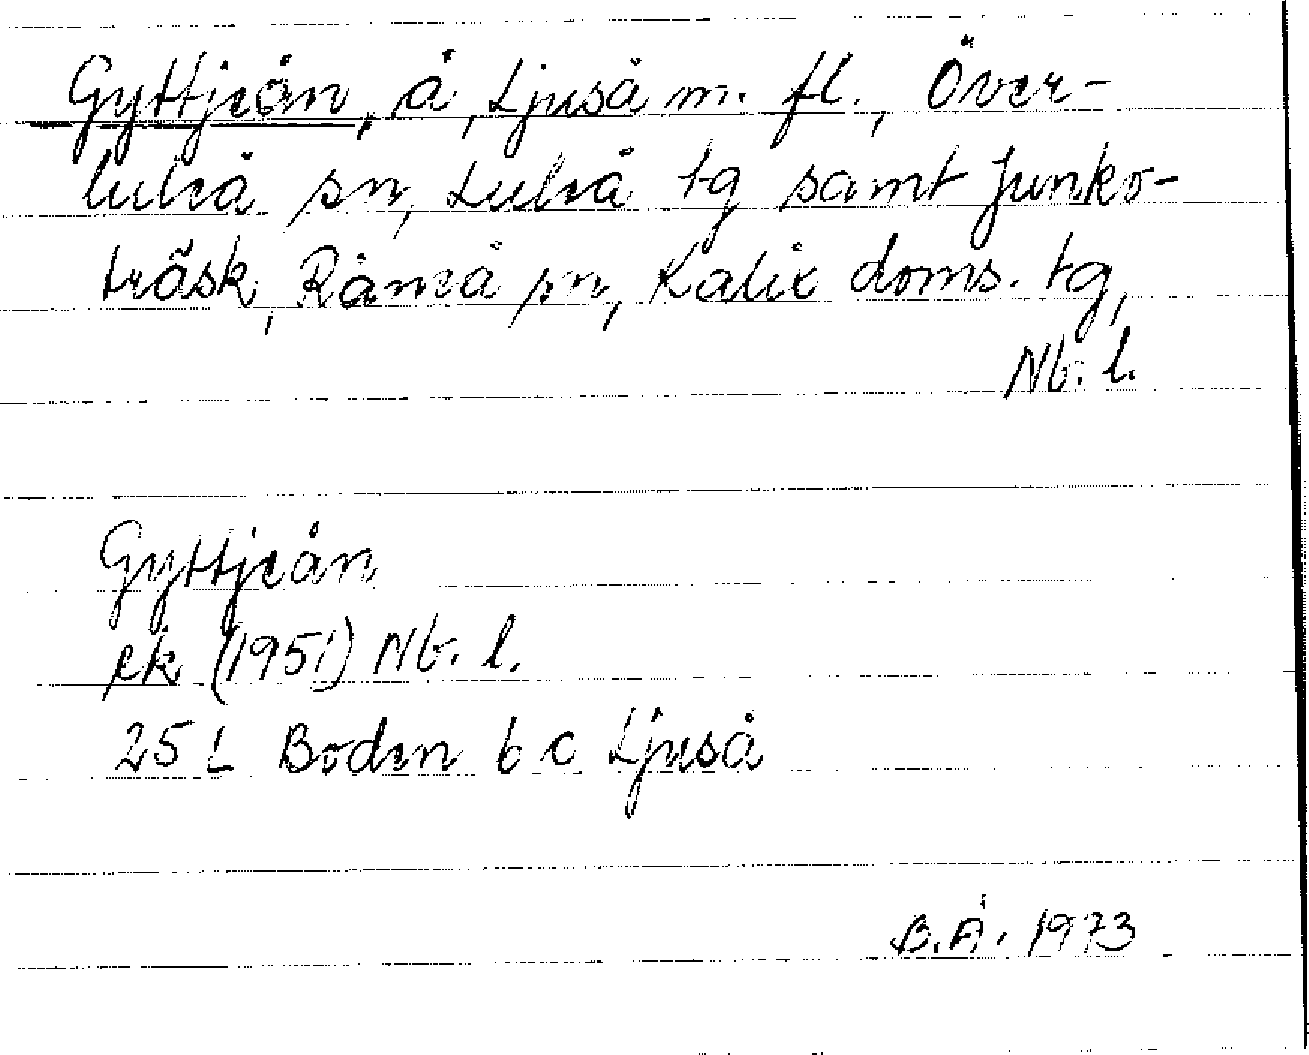 Gyttjeån, å, Ljuså m. fl., Över-
luleå sn, Luleå tg samt Junko-
träsk, Råneå sn, Kalix doms. tg,
Nb. l.
Gyttjeån
ek (1951) Nb. l.
25 L Boden b c Ljuså
B.Å. 1973